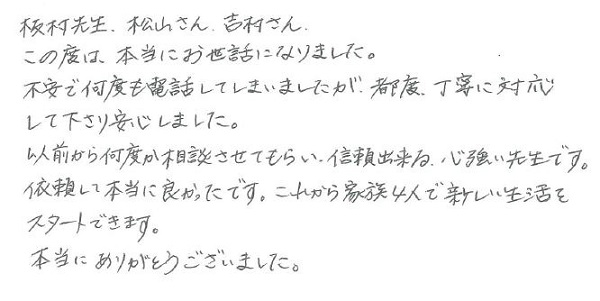 板村先生、松山さん、吉村さん、
この度は、本当にお世話になりました。
不安で何度も電話してしまいましたが、都度、丁寧に対応
して下さり安心しました。
以前から何度か相談させてもらい、信頼出来る、心強い先生です。
依頼して本当に良かったです。これから家族4人で新しい生活を
スタートできます。
本当にありがとうございました。